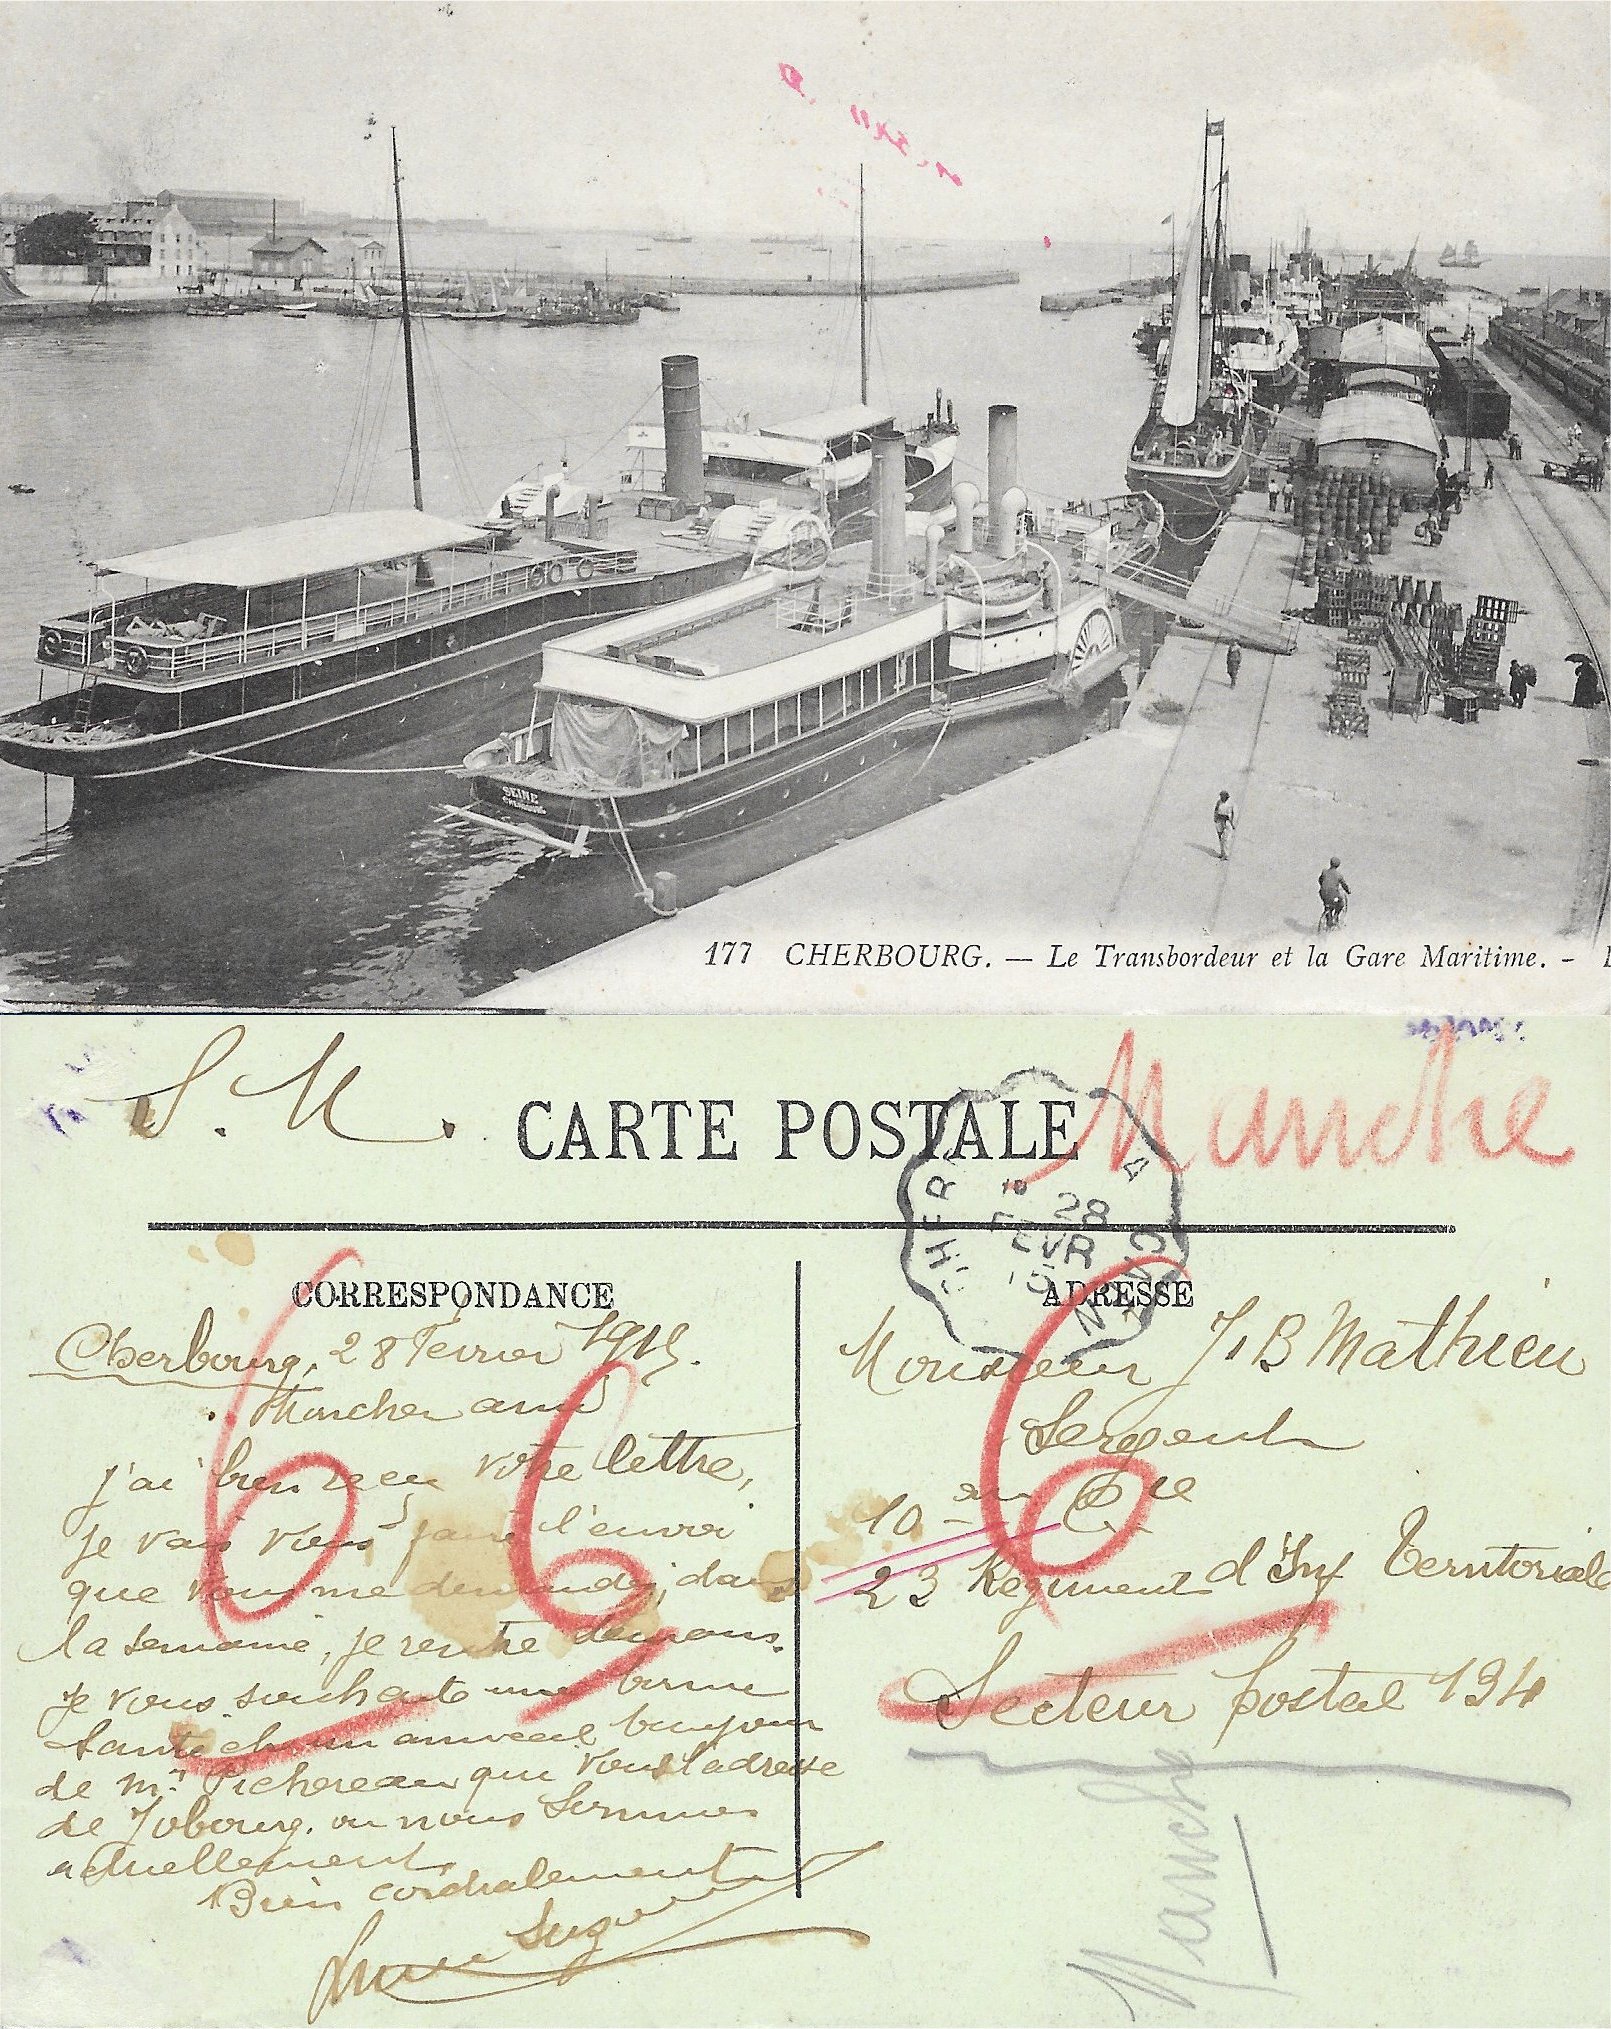 SEINE
CHERBOURG
177 CHERBOURG. — Le Transbordeur et la Gare Maritime. -
S. M.
CARTE POSTALE
Manche
28
FEVR
CORRESPONDANCE
ADRESSE
Cherbourg, 28 Février 1915.
Mon cher ami
j'ai bien reçu votre lettre,
je vais vous faire l'envoi
que vous me demandez, dans
la semaine, je rentre demain.
Je vous souhaite une bonne
Santé et un amical bonjour
de Mr Pichereau qui vous l'adresse
de Jobourg, ou nous Sommes
actuellement
Bien cordialement
Monsieur J. B Mathieu
Sergent
10 Cie
23 Regiment d'Inf Territoriale
Secteur postal 194
Manche
66
6